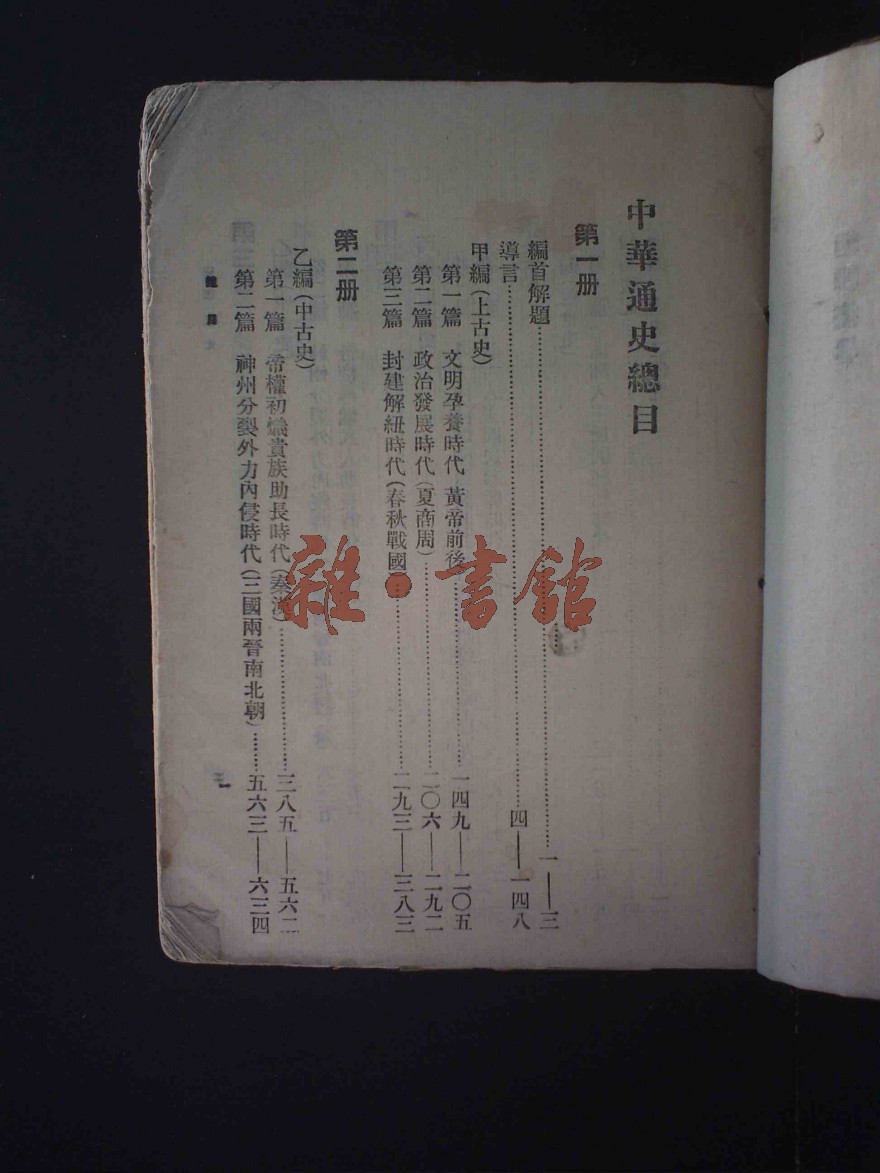 中華通史總目
第一册
編首解題……一——三
導言……四——一四八
甲編(上古史)
第一篇 文明孕養時代 黃帝前後……一四九——二〇五
第二篇 政治發展時代(夏商周)……二〇六——二九二
第三篇 封建解紐時代(春秋戰國)……二九三——三八三
第二册
乙編(中古史)
第一篇 帝權初熾貴族助長時代(秦漢)……三八五——五六二
第二篇 神州分裂外力內侵時代(三國兩晉南北朝)……五六三——六三四
總目
一
雜·書館